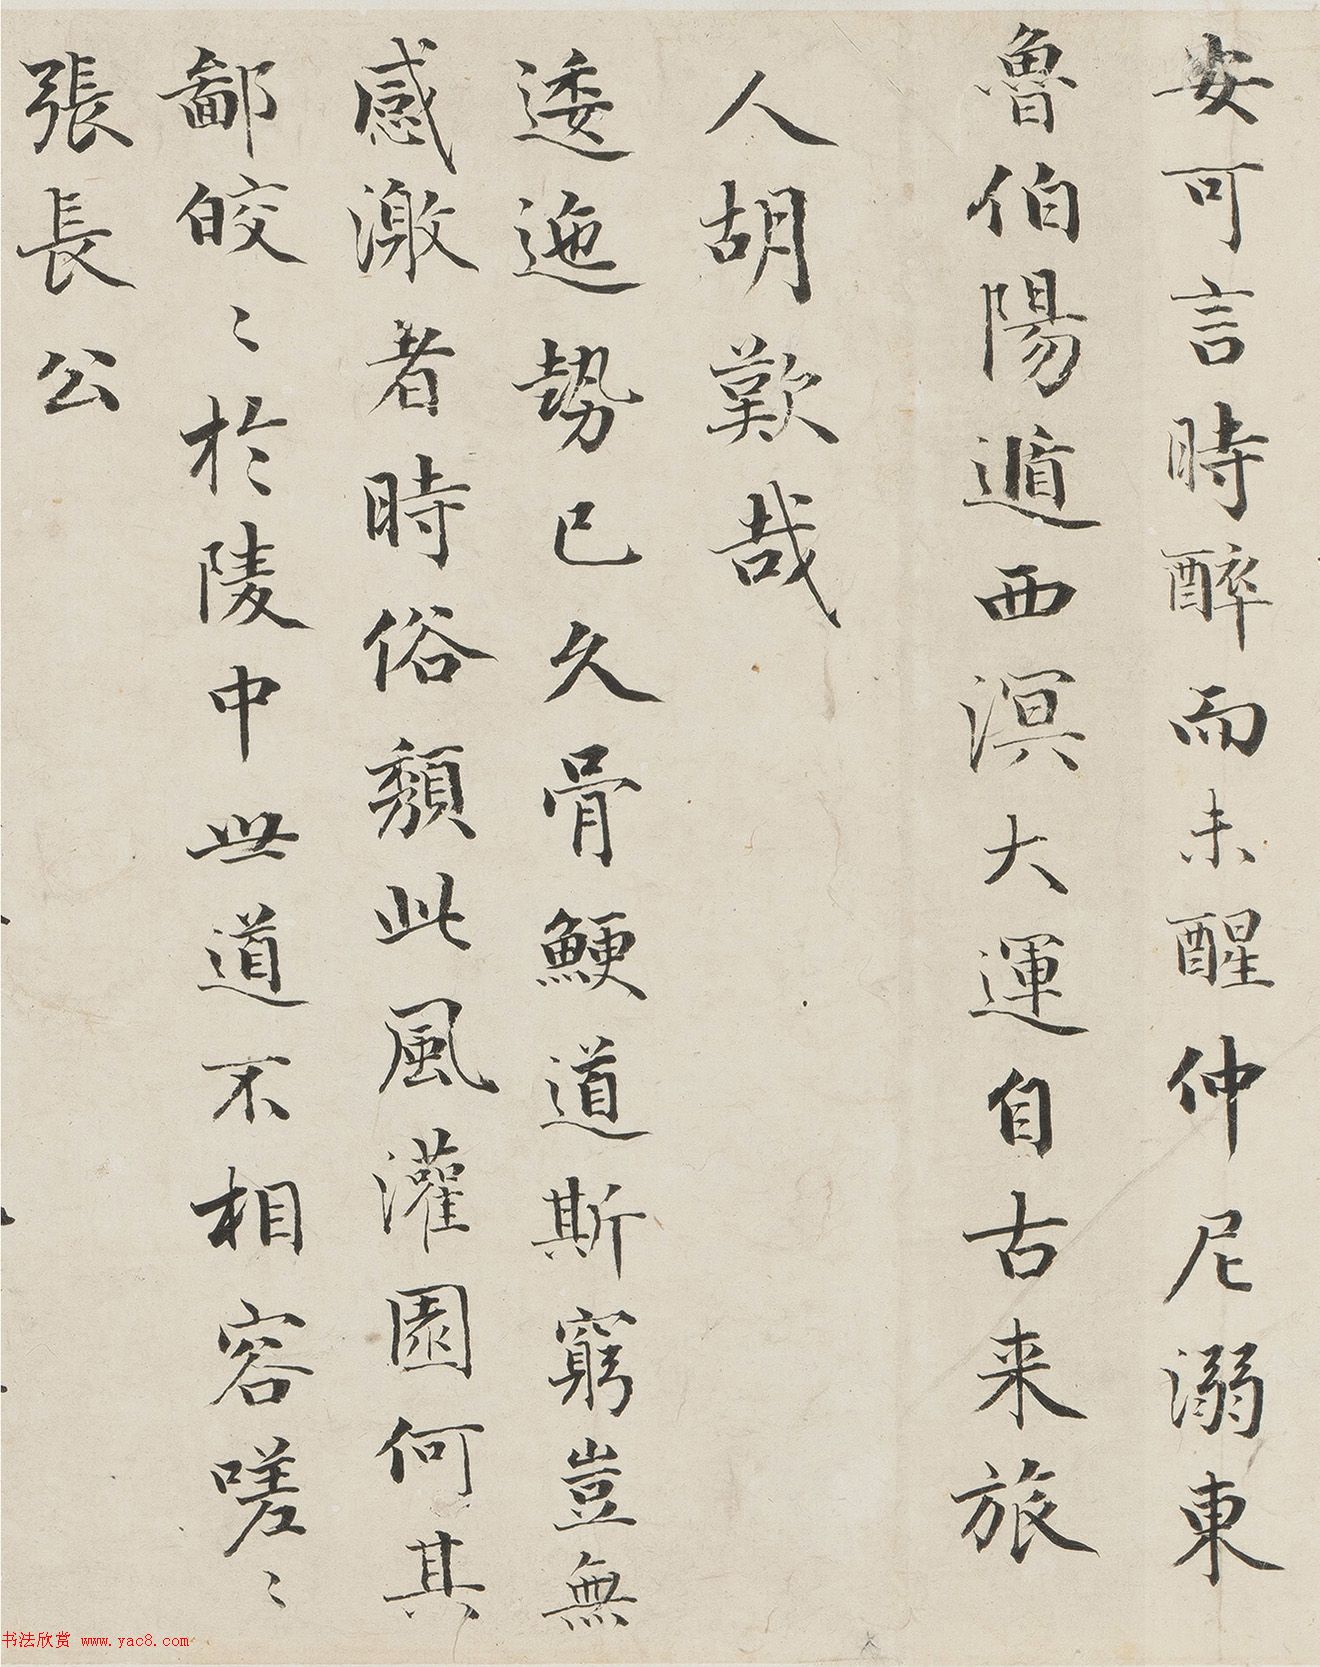 安可言時醉而未醒仲尼溺東
魯伯陽遁西溟大運自古来旅
人胡歎哉
逶迤勢已久骨鯁道斯窮豈無
感激者時俗頹此風灌園何其
鄙皎〻於陵中世道不相容嗟〻
張長公
书法欣赏 www.yac8.com